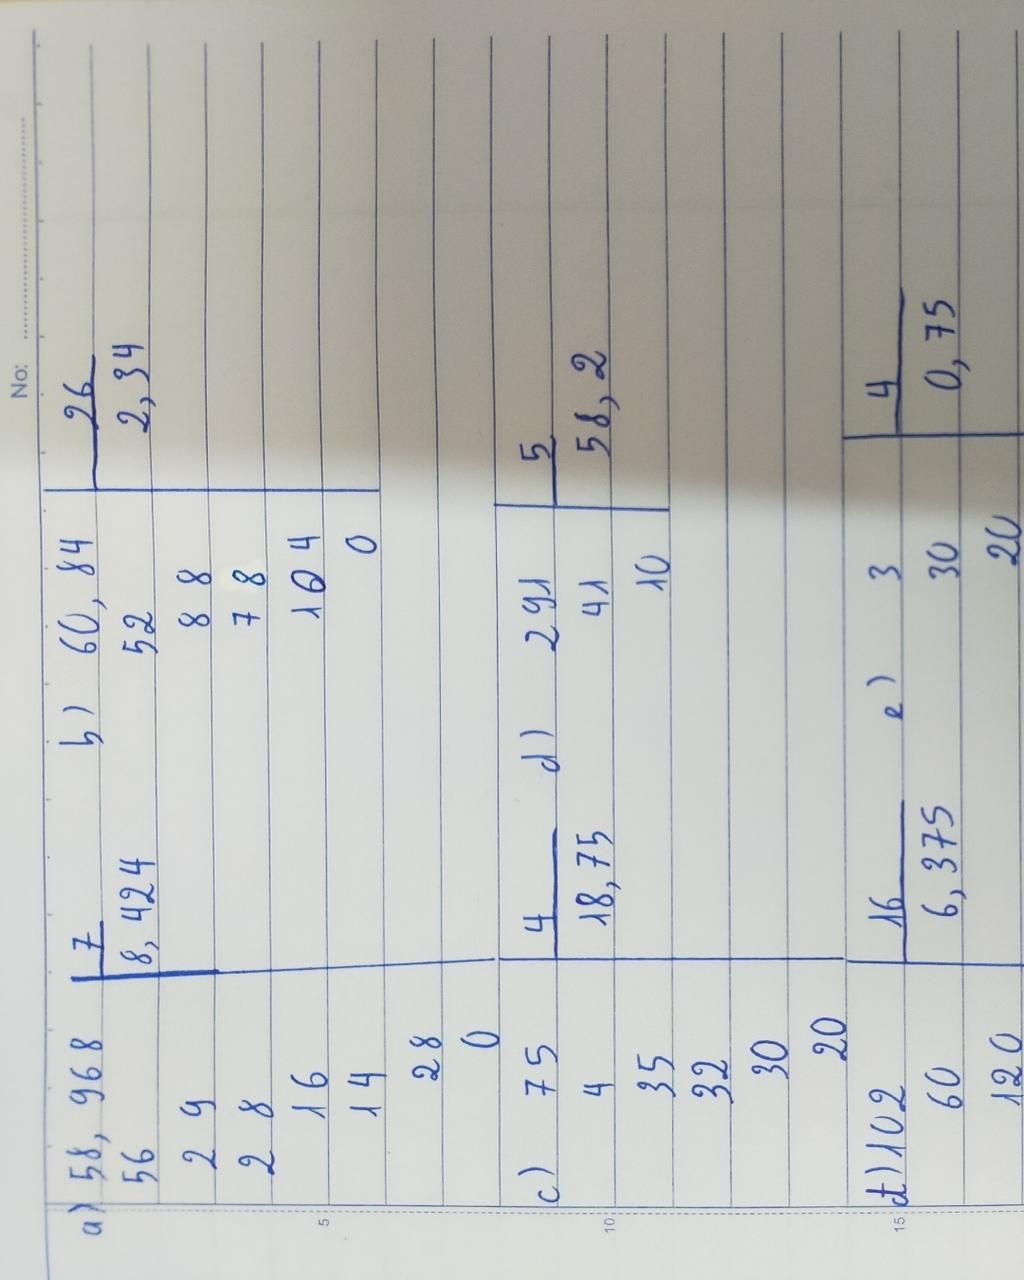 No:
a) 58,968 7 b) 60,84 26
56 8,424 52 2,34
2 9 8 8
2 8 7 8
5 16 104
14 0
28
0
c) 75 4 d) 291 5
10 4 18,75 41 58,2
35 10
32
30
20
d) 102 16 e) 3 4
15 60 6,375 30 0,75
120 20